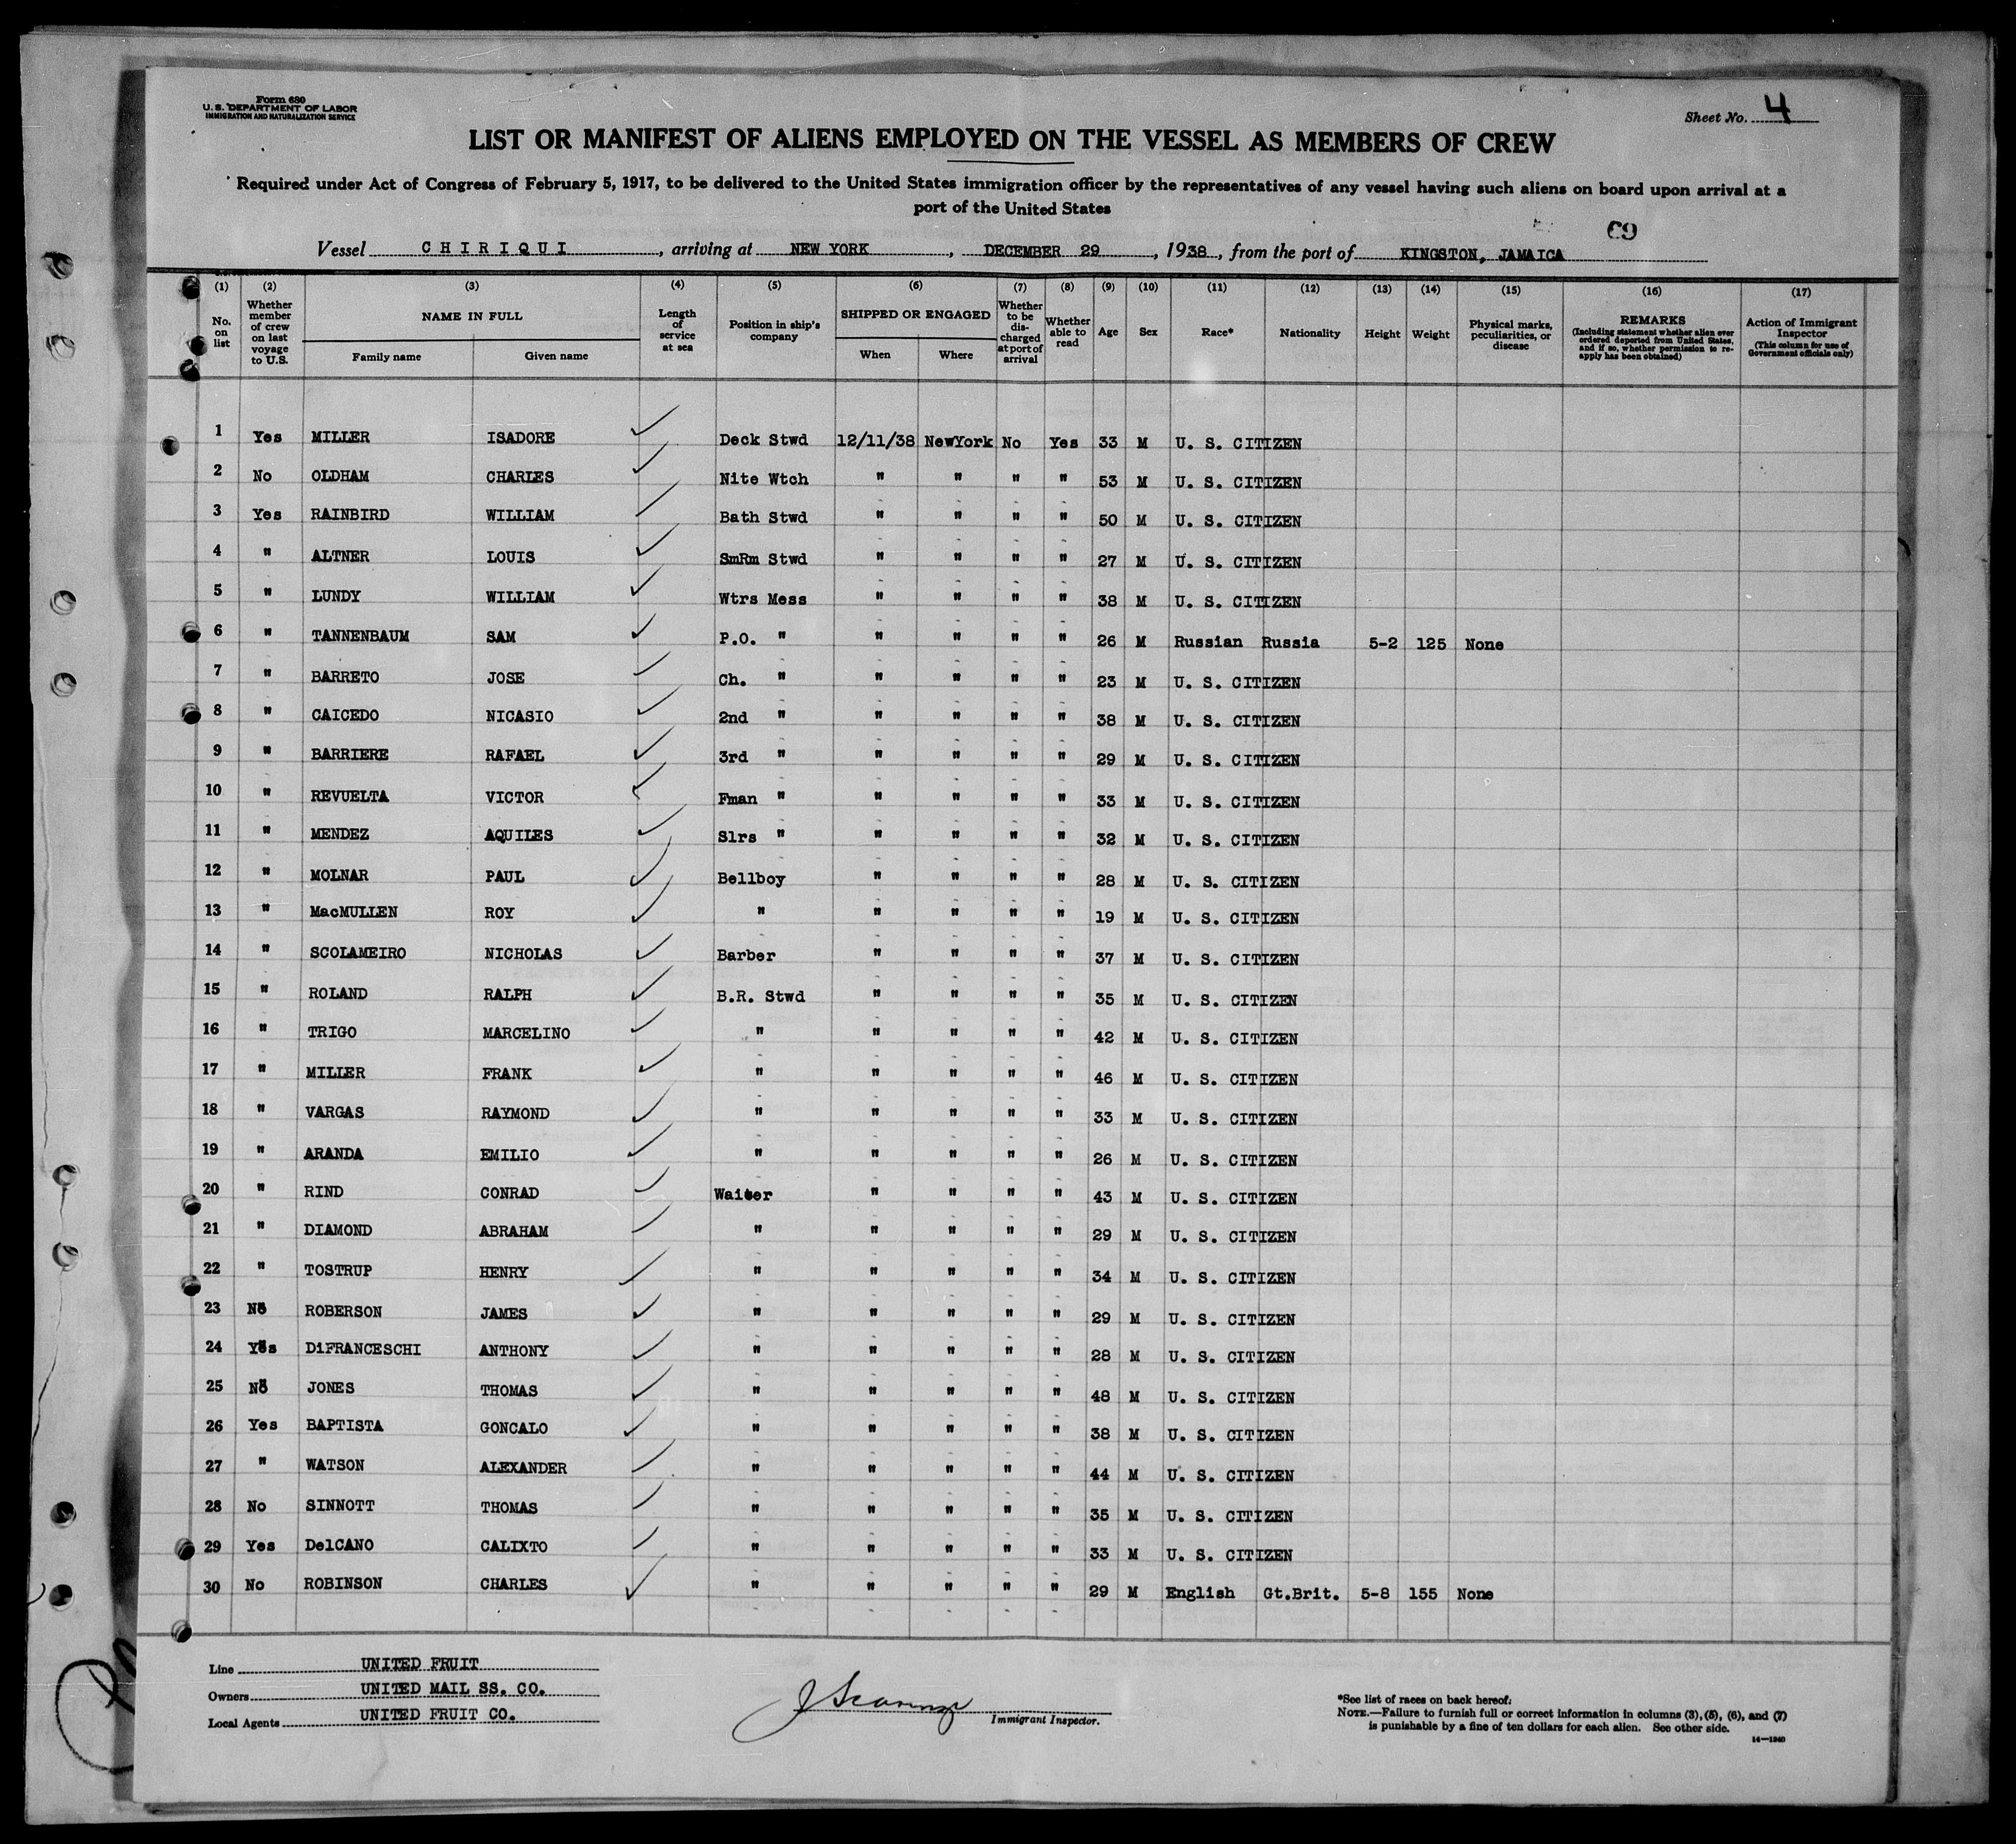 Form 680
U. S. DEPARTMENT OF LABOR
IMMIGRATION AND NATURALIZATION SERVICE
Sheet No. 4
LIST OR MANIFEST OF ALIENS EMPLOYED ON THE VESSEL AS MEMBERS OF CREW
Required under Act of Congress of February 5, 1917, to be delivered to the United States immigration officer by the representatives of any vessel having such aliens on board upon arrival at a
port of the United States
69
Vessel CHIRIQUI, arriving at NEW YORK, DECEMBER 29, 1938, from the port of KINGSTON, JAMAICA
(1) (2) (3) (4) (5) (6) (7) (8) (9) (10) (11) (12) (13) (14) (15) (16) (17)
No. on list
Whether member of crew on last voyage to U.S.
NAME IN FULL
Family name Given name
Length of service at sea
Position in ship's company
SHIPPED OR ENGAGED
When Where
Whether to be discharged at port of arrival
Whether able to read
Age
Sex
Race*
Nationality
Height
Weight
Physical marks, peculiarities, or disease
REMARKS
(Including statement whether alien ever ordered deported from United States, and if so, whether permission to reapply has been obtained)
Action of Immigrant Inspector
(This column for use of Government officials only)
1 Yes MILLER ISADORE Deck Stwd 12/11/38 NewYork No Yes 33 M U. S. CITIZEN
2 No OLDHAM CHARLES Nite Wtch " " " " 53 M U. S. CITIZEN
3 Yes RAINBIRD WILLIAM Bath Stwd " " " " 50 M U. S. CITIZEN
4 " ALTNER LOUIS SmRm Stwd " " " " 27 M U. S. CITIZEN
5 " LUNDY WILLIAM Wtrs Mess " " " " 38 M U. S. CITIZEN
6 " TANNENBAUM SAM P.O. " " " " " 26 M Russian Russia 5-2 125 None
7 " BARRETO JOSE Ch. " " " " " 23 M U. S. CITIZEN
8 " CAICEDO NICASIO 2nd " " " " " 38 M U. S. CITIZEN
9 " BARRIERE RAFAEL 3rd " " " " " 29 M U. S. CITIZEN
10 " REVUELTA VICTOR Fman " " " " " 33 M U. S. CITIZEN
11 " MENDEZ AQUILES Slrs " " " " " 32 M U. S. CITIZEN
12 " MOLNAR PAUL Bellboy " " " " 28 M U. S. CITIZEN
13 " MacMULLEN ROY " " " " " 19 M U. S. CITIZEN
14 " SCOLAMEIRO NICHOLAS Barber " " " " 37 M U. S. CITIZEN
15 " ROLAND RALPH B.R. Stwd " " " " 35 M U. S. CITIZEN
16 " TRIGO MARCELINO " " " " " 42 M U. S. CITIZEN
17 " MILLER FRANK " " " " " 46 M U. S. CITIZEN
18 " VARGAS RAYMOND " " " " " 33 M U. S. CITIZEN
19 " ARANDA EMILIO " " " " " 26 M U. S. CITIZEN
20 " RIND CONRAD Waiter " " " " 43 M U. S. CITIZEN
21 " DIAMOND ABRAHAM " " " " " 29 M U. S. CITIZEN
22 " TOSTRUP HENRY " " " " " 34 M U. S. CITIZEN
23 No ROBERSON JAMES " " " " " 29 M U. S. CITIZEN
24 Yes DiFRANCESCHI ANTHONY " " " " " 28 M U. S. CITIZEN
25 No JONES THOMAS " " " " " 48 M U. S. CITIZEN
26 Yes BAPTISTA GONCALO " " " " " 38 M U. S. CITIZEN
27 " WATSON ALEXANDER " " " " " 44 M U. S. CITIZEN
28 No SINNOTT THOMAS " " " " " 35 M U. S. CITIZEN
29 Yes DelCANO CALIXTO " " " " " 33 M U. S. CITIZEN
30 No ROBINSON CHARLES " " " " " 29 M English Gt.Brit. 5-8 155 None
Line UNITED FRUIT
Owners UNITED MAIL SS. CO.
Local Agents UNITED FRUIT CO.
Immigrant Inspector.
*See list of races on back hereof.
NOTE.—Failure to furnish full or correct information in columns (3), (5), (6), and (7)
is punishable by a fine of ten dollars for each alien. See other side.
14—1240